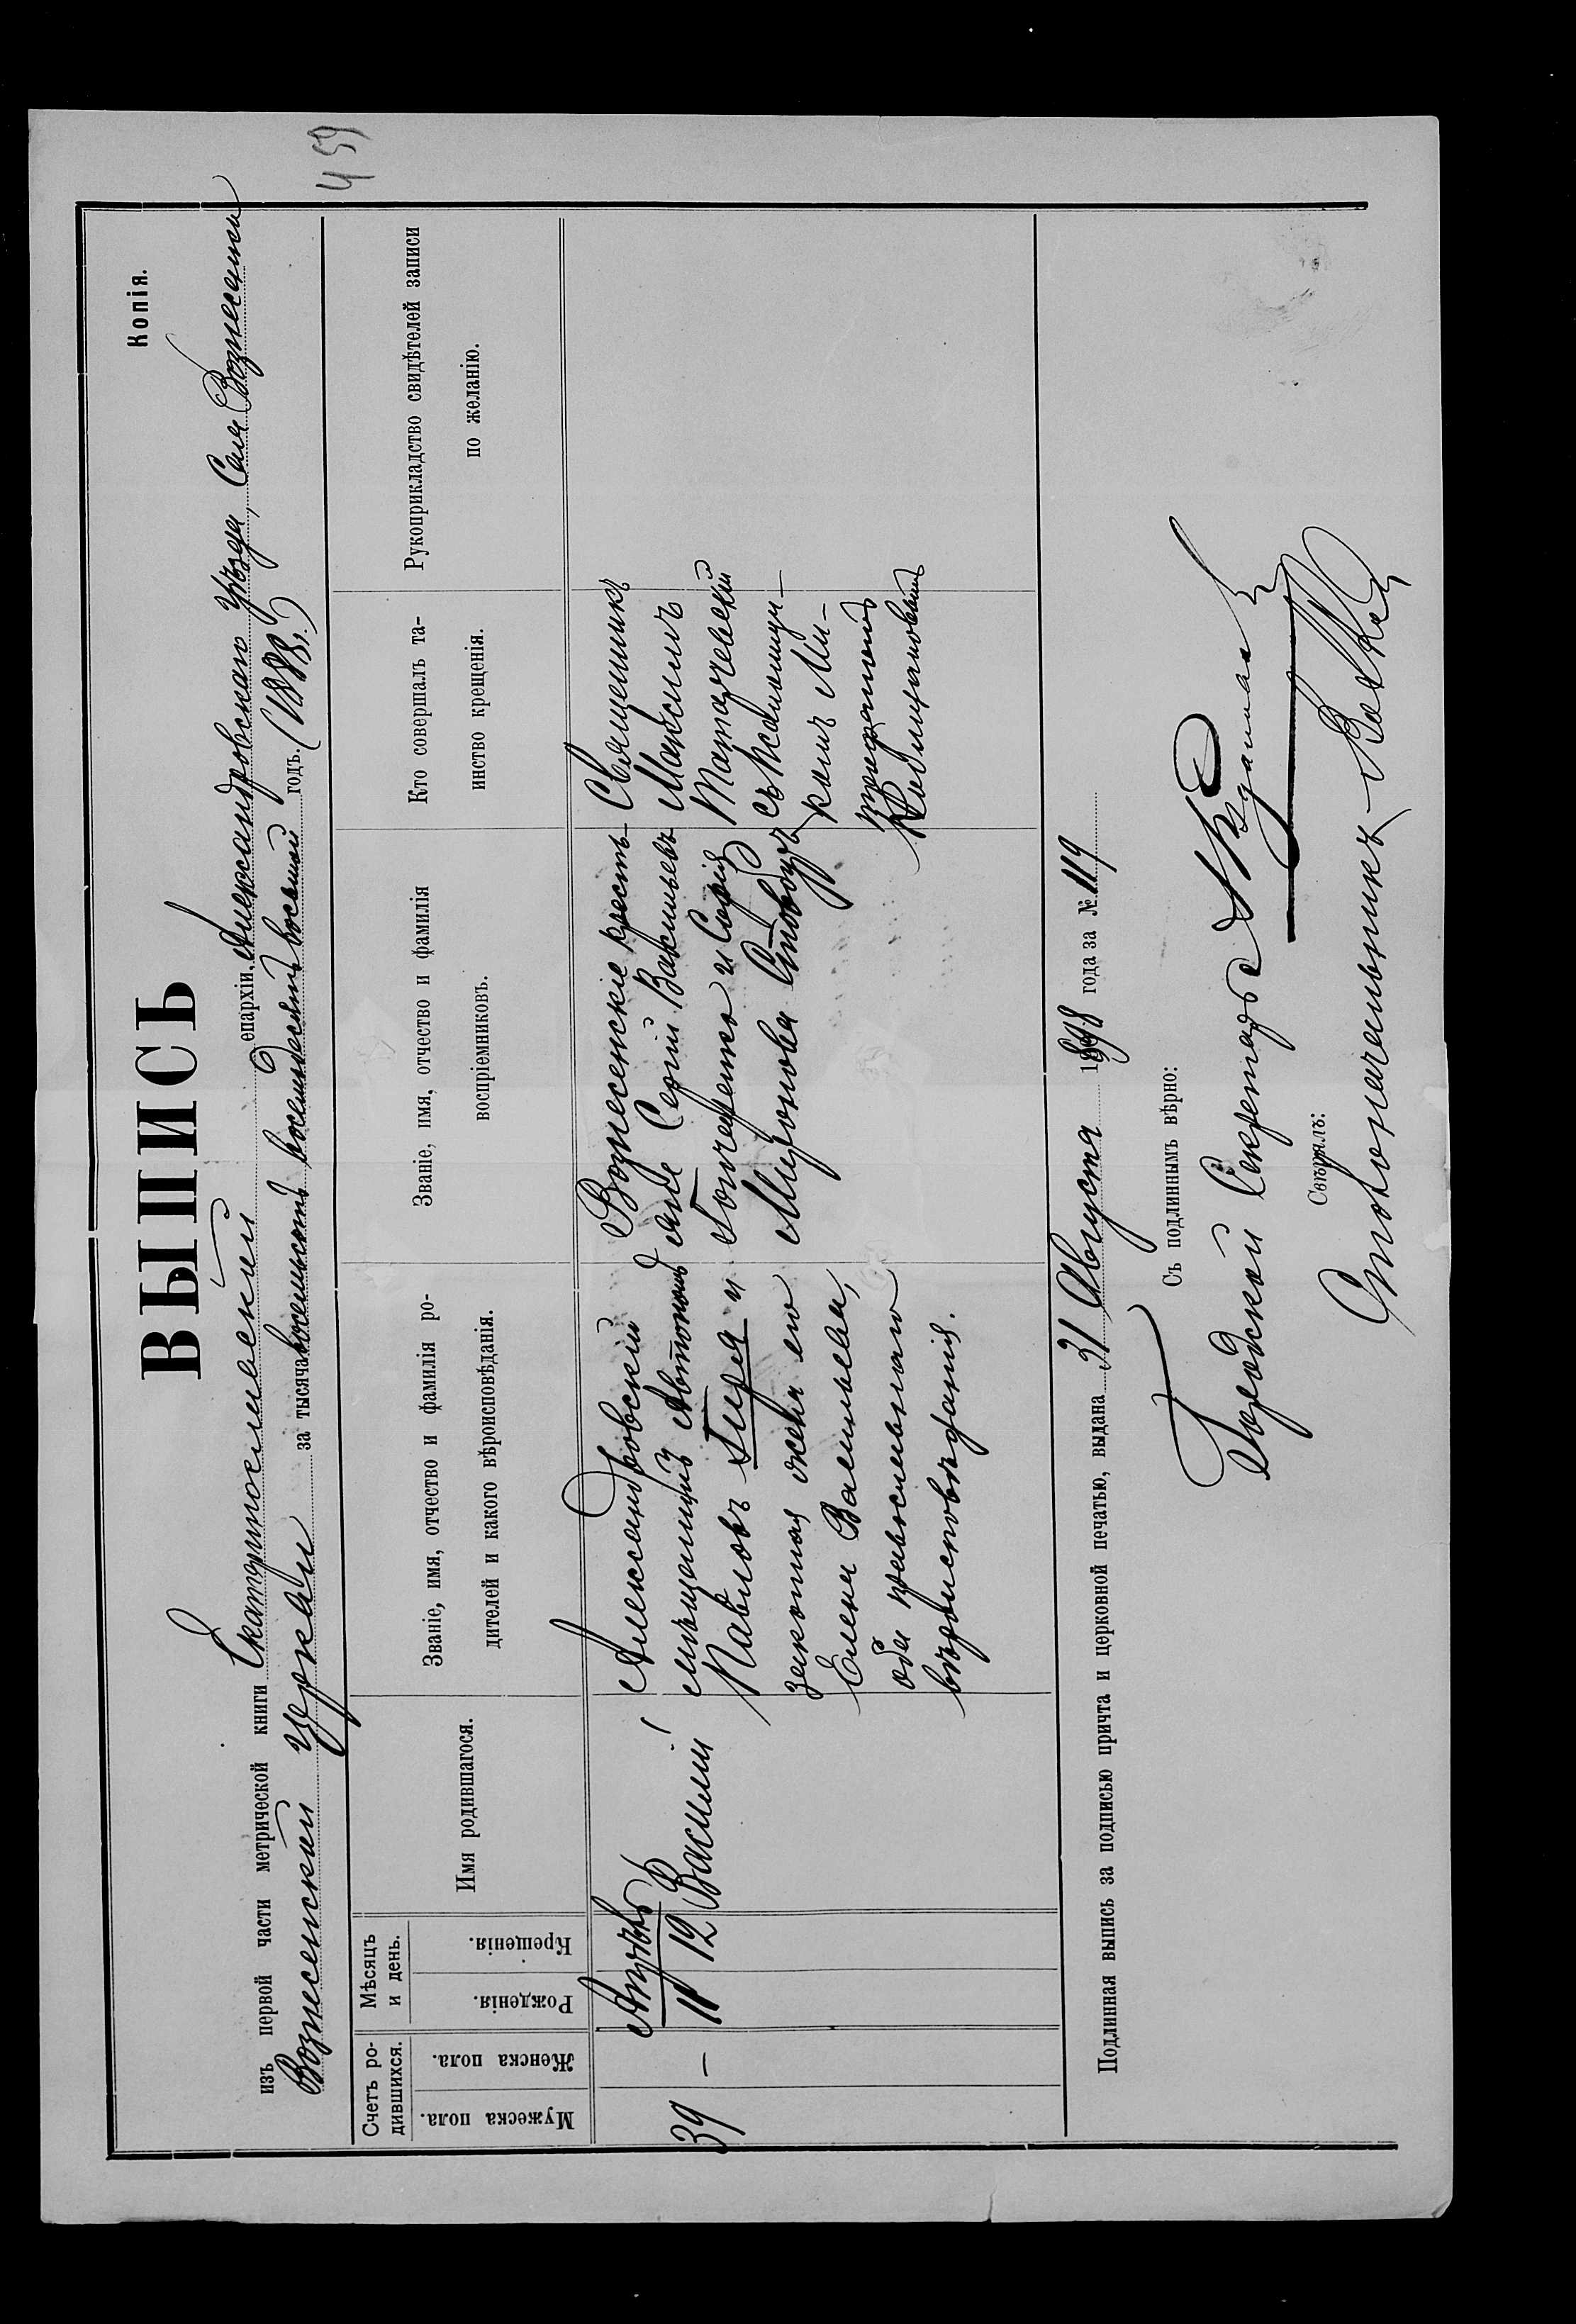 Копія.
459
ВЫПИСЬ
изъ первой части метрической книги Екатеринославской епархіи, Александровскаго уѣзда, Села Вознесенки
Вознесенской церкви за тысяча восемьсотъ восемьдесятъ восьмой годъ. (1888 г.)
Счетъ ро-
дившихся.
Мужеска пола.
Женска пола.
Мѣсяцъ
и день.
Рожденія.
Крещенія.
Имя родившагося.
Званіе, имя, отчество и фамилія ро-
дителей и какого вѣроисповѣданія.
Званіе, имя, отчество и фамилія
воспріемниковъ.
Кто совершалъ та-
инство крещенія.
Рукоприкладство свидѣтелей записи
по желанію.
39
—
Апрѣль
11 12
Василій
Александровскій
мѣщанинъ Автономъ
Павловъ Гиря и
законная жена его
Елена Васильева,
оба православнаго
вѣроисповѣданія.
Вознесенскіе кресть-
яне Сергій Васильевъ
Гончаренко и Софія
Миронова
Священникъ
Максимъ
Матачевскій
съ псаломщи-
комъ Ми-
трофаномъ
Подлинная выпись за подписью причта и церковной печатью, выдана 31 Августа 1898 года за № 119
Съ подлиннымъ вѣрно:
Городской Секретарь
Свѣрялъ:
Столоначальникъ